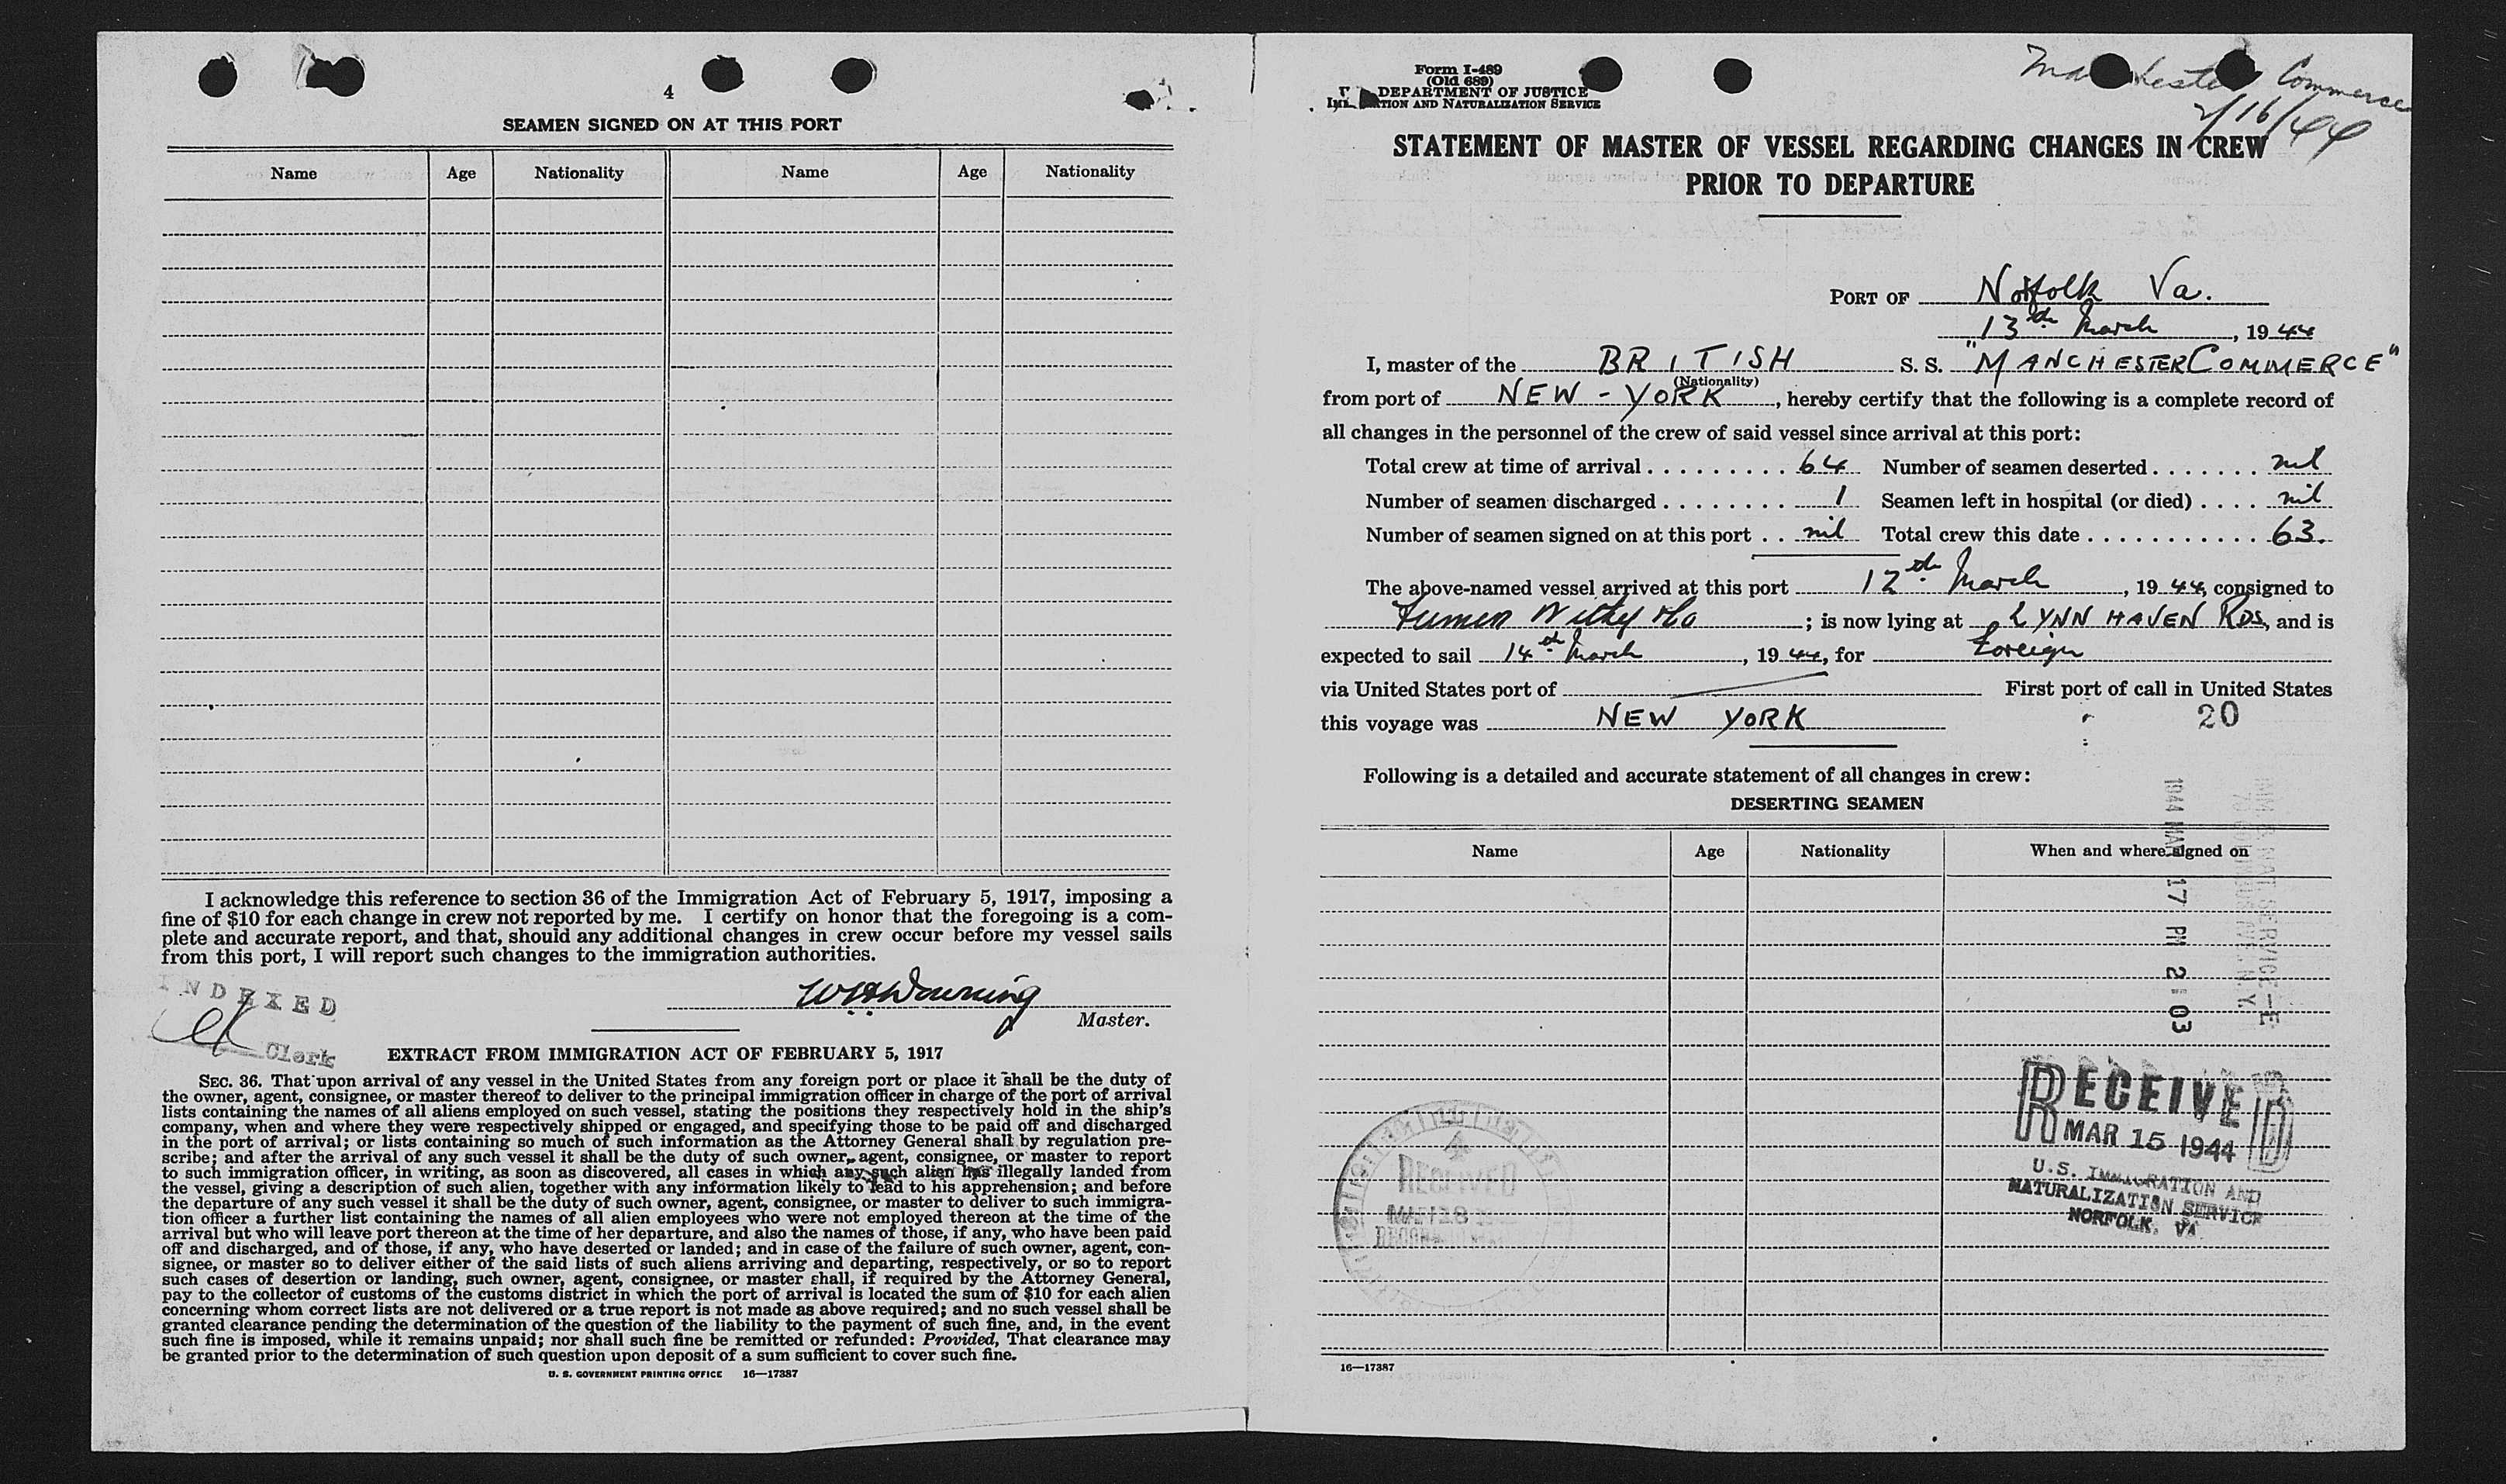 4
SEAMEN SIGNED ON AT THIS PORT
Name Age Nationality Name Age Nationality
I acknowledge this reference to section 36 of the Immigration Act of February 5, 1917, imposing a
fine of $10 for each change in crew not reported by me. I certify on honor that the foregoing is a com-
plete and accurate report, and that, should any additional changes in crew occur before my vessel sails
from this port, I will report such changes to the immigration authorities.
INDEXED
WH Downing
Master.
Clerk
EXTRACT FROM IMMIGRATION ACT OF FEBRUARY 5, 1917
SEC. 36. That upon arrival of any vessel in the United States from any foreign port or place it shall be the duty of
the owner, agent, consignee, or master thereof to deliver to the principal immigration officer in charge of the port of arrival
lists containing the names of all aliens employed on such vessel, stating the positions they respectively hold in the ship's
company, when and where they were respectively shipped or engaged, and specifying those to be paid off and discharged
in the port of arrival; or lists containing so much of such information as the Attorney General shall by regulation pre-
scribe; and after the arrival of any such vessel it shall be the duty of such owner, agent, consignee, or master to report
to such immigration officer, in writing, as soon as discovered, all cases in which any such alien has illegally landed from
the vessel, giving a description of such alien, together with any information likely to lead to his apprehension; and before
the departure of any such vessel it shall be the duty of such owner, agent, consignee, or master to deliver to such immigra-
tion officer a further list containing the names of all alien employees who were not employed thereon at the time of the
arrival but who will leave port thereon at the time of her departure, and also the names of those, if any, who have been paid
off and discharged, and of those, if any, who have deserted or landed; and in case of the failure of such owner, agent, con-
signee, or master so to deliver either of the said lists of such aliens arriving and departing, respectively, or so to report
such cases of desertion or landing, such owner, agent, consignee, or master shall, if required by the Attorney General,
pay to the collector of customs of the customs district in which the port of arrival is located the sum of $10 for each alien
concerning whom correct lists are not delivered or a true report is not made as above required; and no such vessel shall be
granted clearance pending the determination of the question of the liability to the payment of such fine, and, in the event
such fine is imposed, while it remains unpaid; nor shall such fine be remitted or refunded: Provided, That clearance may
be granted prior to the determination of such question upon deposit of a sum sufficient to cover such fine.
U. S. GOVERNMENT PRINTING OFFICE 16—17387
Form I-489
(Old 689)
DEPARTMENT OF JUSTICE
AND NATURALIZATION SERVICE
Manchester Commerce
2/16/44
STATEMENT OF MASTER OF VESSEL REGARDING CHANGES IN CREW
PRIOR TO DEPARTURE
PORT OF Norfolk Va.
13th March, 1944
I, master of the BRITISH S. S. "MANCHESTER COMMERCE"
(Nationality)
from port of NEW-YORK, hereby certify that the following is a complete record of
all changes in the personnel of the crew of said vessel since arrival at this port:
Total crew at time of arrival . . . . . . . . . 64 Number of seamen deserted . . . . . . . nil
Number of seamen discharged . . . . . . . . 1 Seamen left in hospital (or died) . . . . nil
Number of seamen signed on at this port . . nil Total crew this date . . . . . . . . . . . . 63.
The above-named vessel arrived at this port 12th March, 1944, consigned to
Withy ; is now lying at LYNN HAVEN RDS, and is
expected to sail 14th March, 1944, for Foreign
via United States port of First port of call in United States
this voyage was NEW YORK
20
Following is a detailed and accurate statement of all changes in crew:
DESERTING SEAMEN
Name Age Nationality When and where signed on
1944 MAR 17 PM 2:03
RECEIVED
MAR 15 1944
U.S. IMMIGRATION AND
NATURALIZATION SERVICE
NORFOLK, VA.
RECEIVED
16—17387